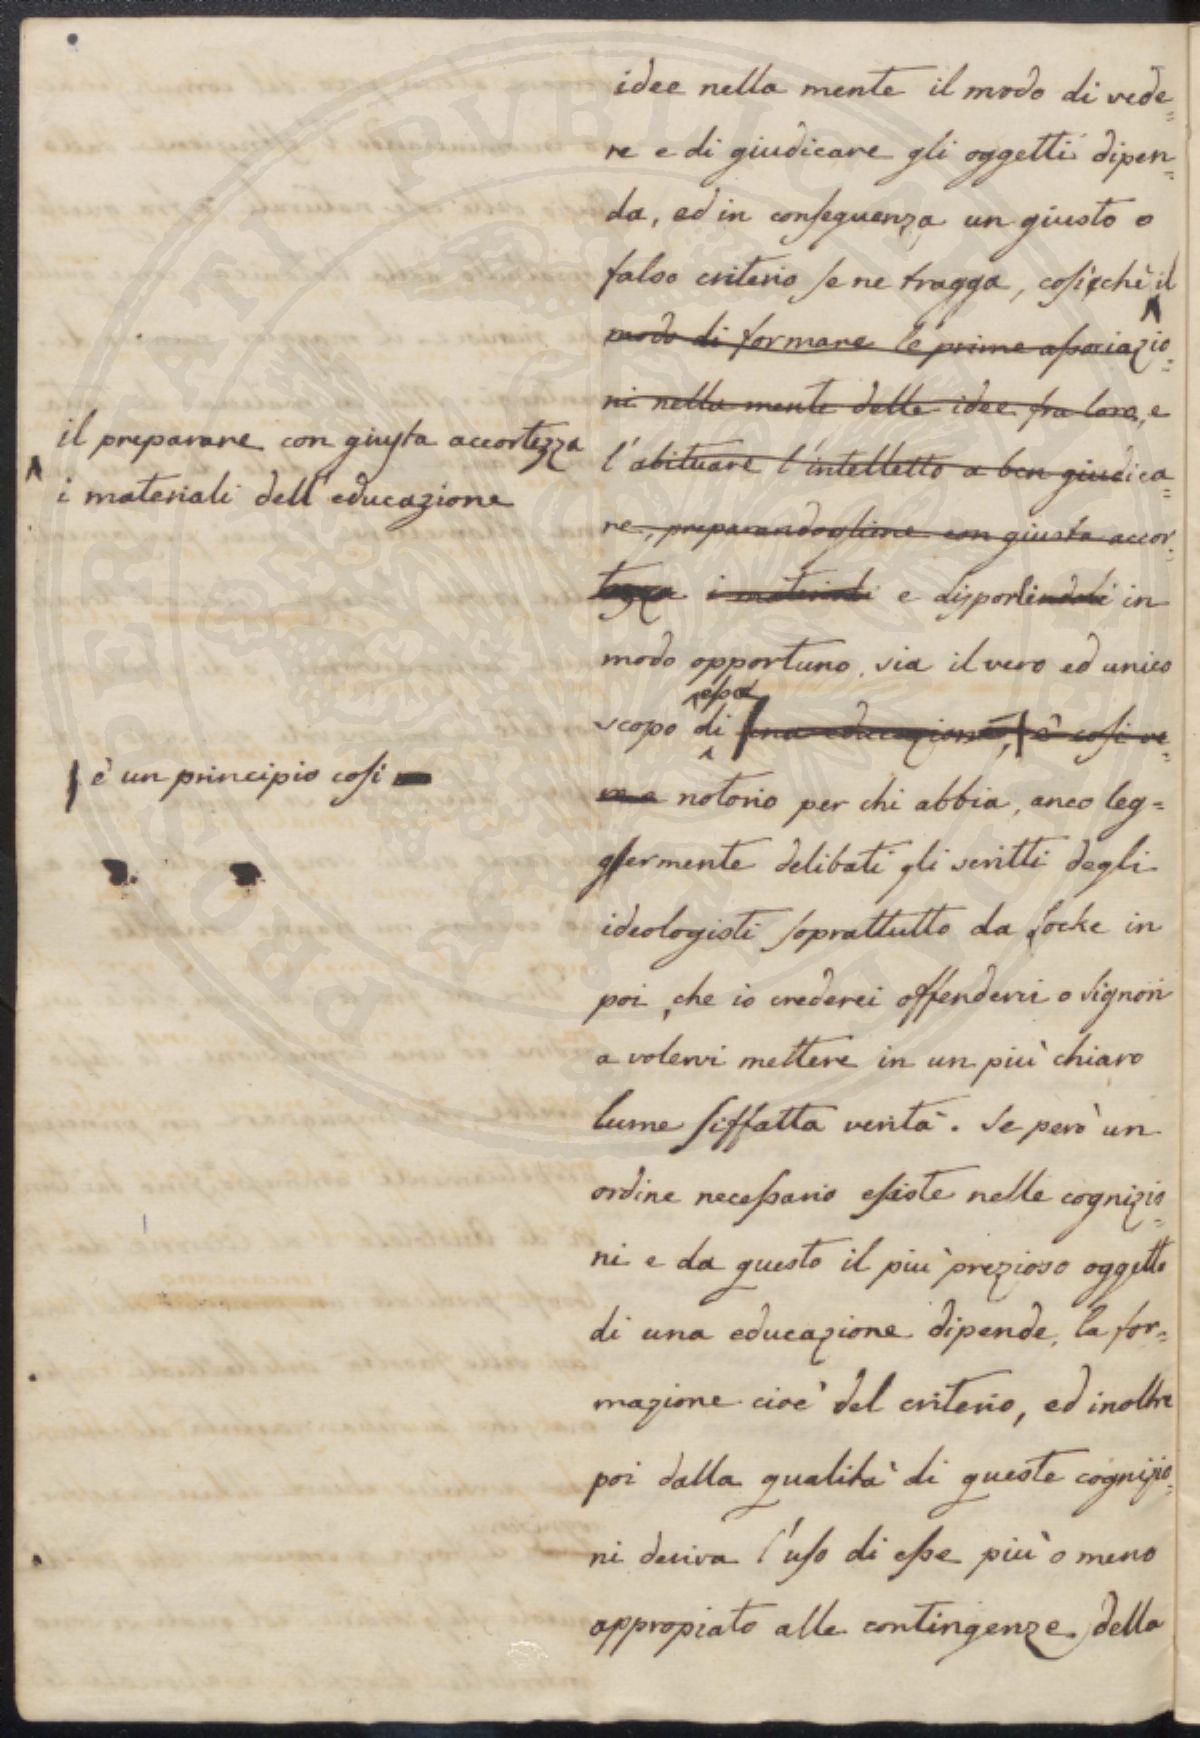 idee nella mente il modo di vede=
re e di giudicare gli oggetti dipen=
da, ed in conseguenza un giusto o
falso criterio se ne tragga, cosicchè il
modo di formare le prime associazio=
ni nella mente delle idee fra loro, e
l'abituare l'intelletto a ben giudica=
re, preparandogline con giusta accor=
tezza i materiali e disporli in
modo opportuno, sia il vero ed unico
scopo di essa una educazione, è così ve=
ro e notorio per chi abbia, anco leg=
giermente delibati gli scritti degli
ideologisti soprattutto da Locke in
poi, che io crederei offendervi o signori
a volervi mettere in un più chiaro
lume siffatta verità. Se però un
ordine necessario esiste nelle cognizio=
ni e da questo il più prezioso oggetto
di una educazione dipende, la for=
mazione cioè del criterio, ed inoltre
poi dalla qualità di queste cognizio=
ni deriva l'uso di esse più o meno
appropiato alle contingenze della
il preparare con giusta accortezza
i materiali dell'educazione
è un principio così
PERUGIA AUGUSTA